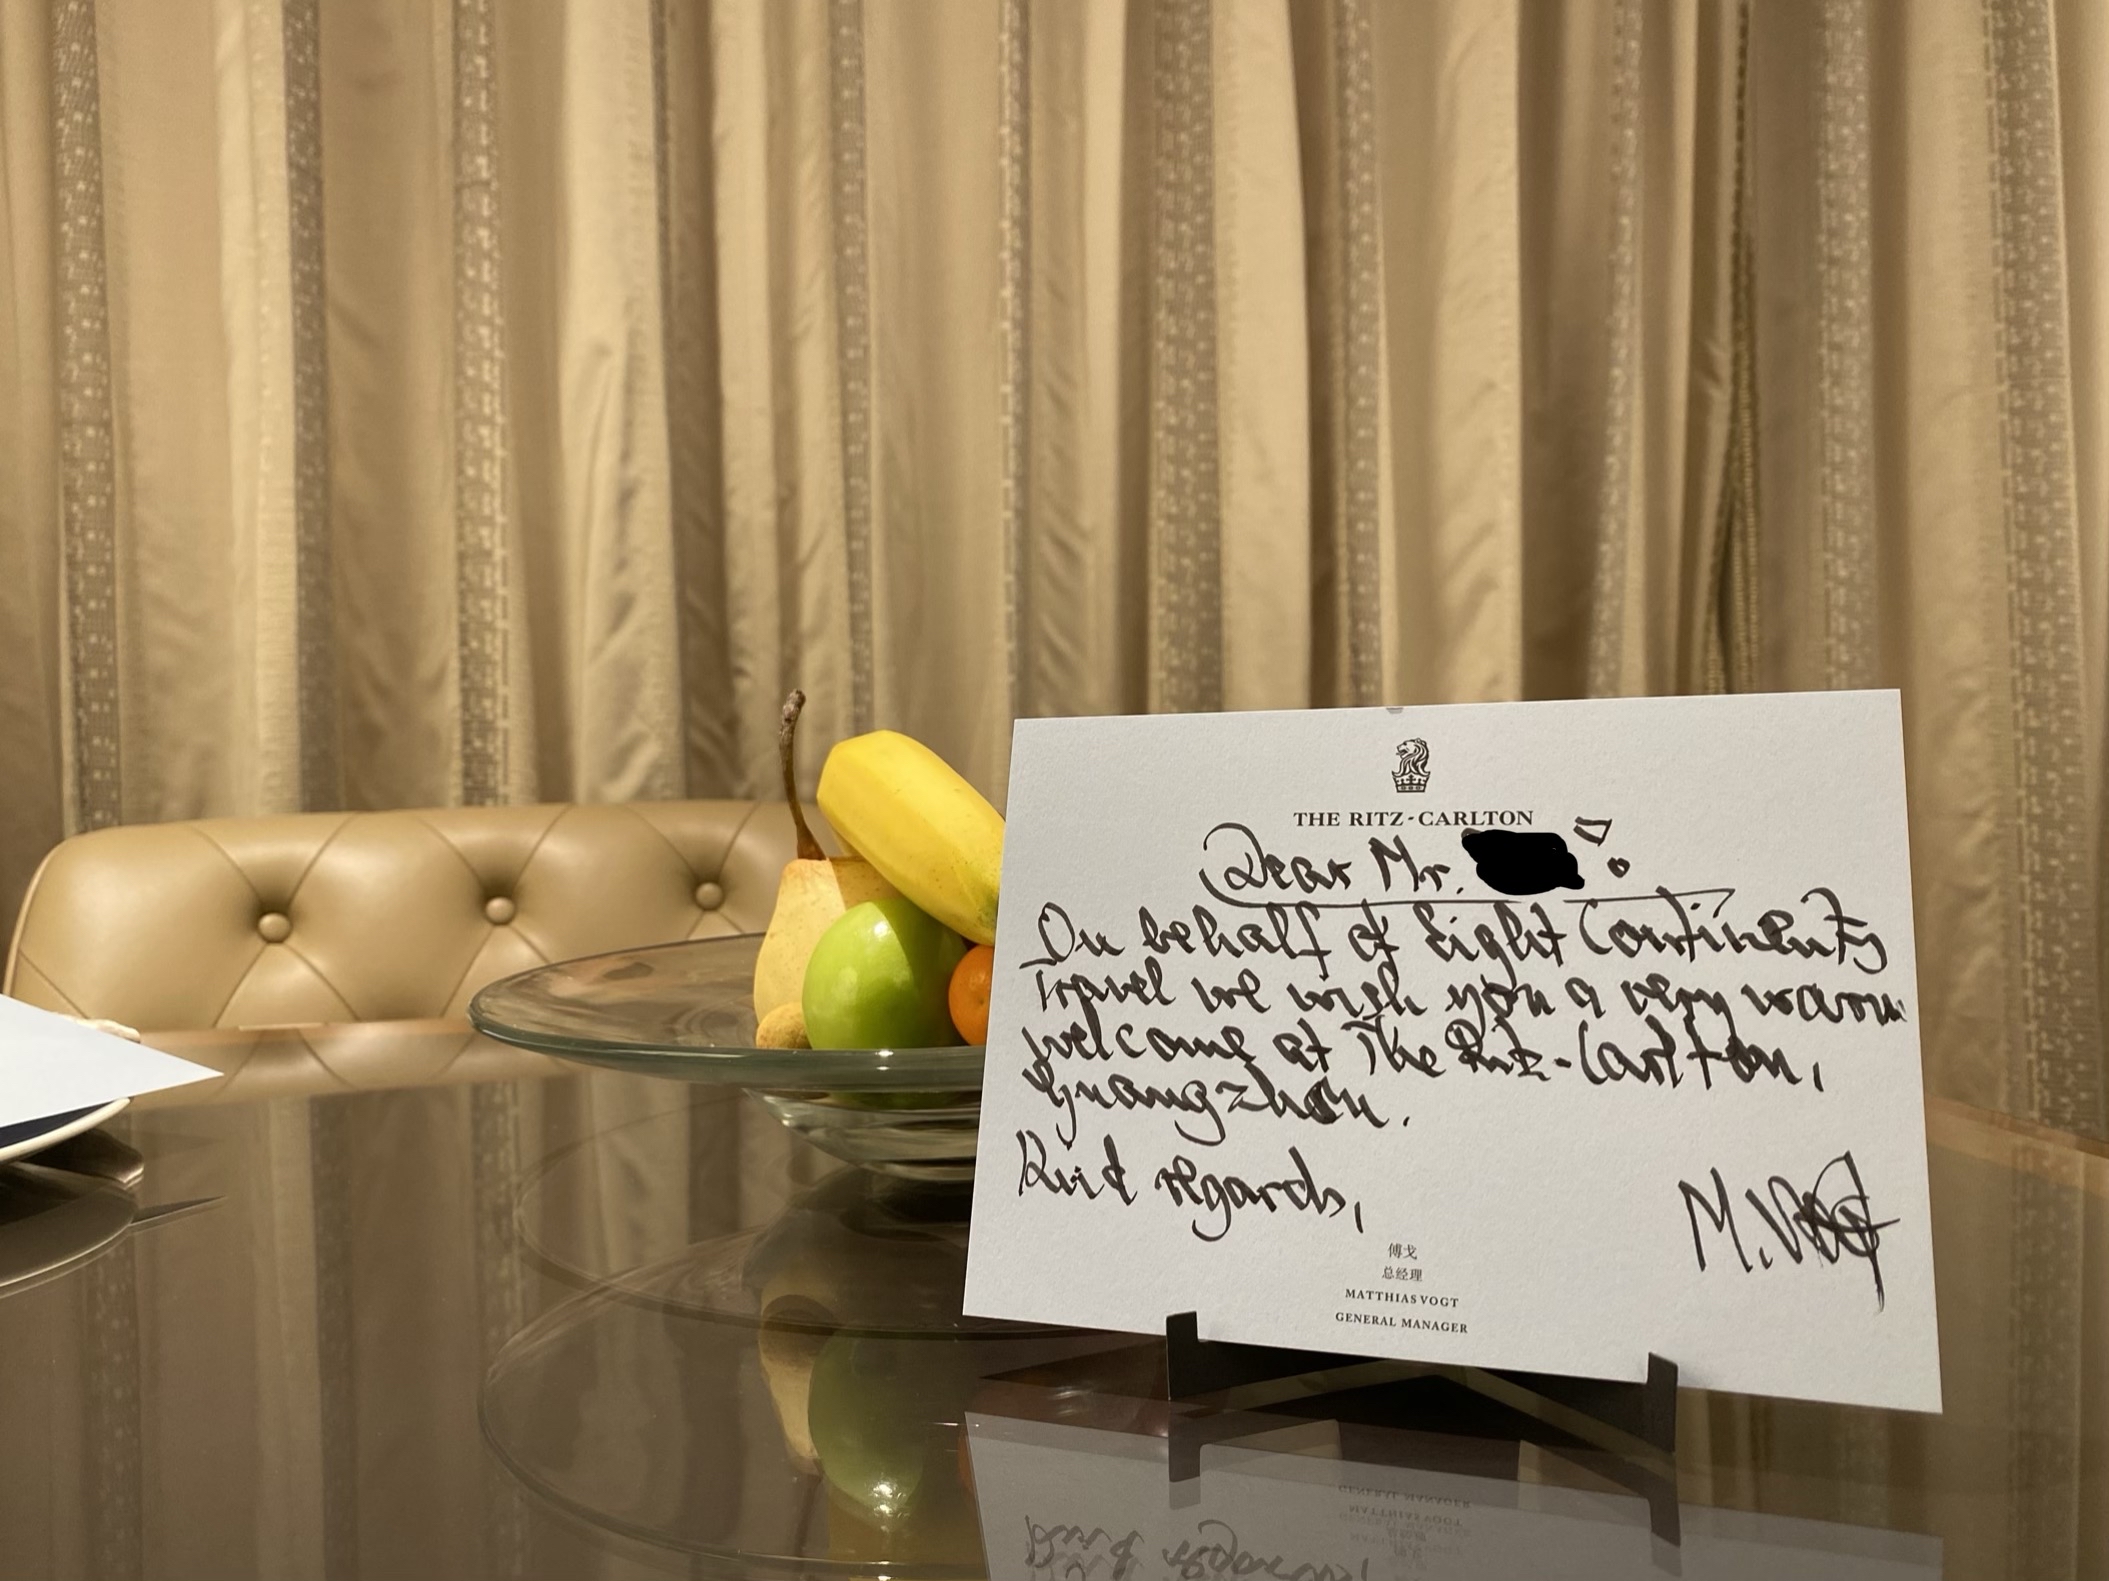 THE RITZ-CARLTON
Dear Mr.
On behalf of Eight Continents
Travel we wish you a very warm
welcome at The Ritz-Carlton,
Guangzhou.
Kind regards,
M. Vogt
傅戈
总经理
MATTHIAS VOGT
GENERAL MANAGER